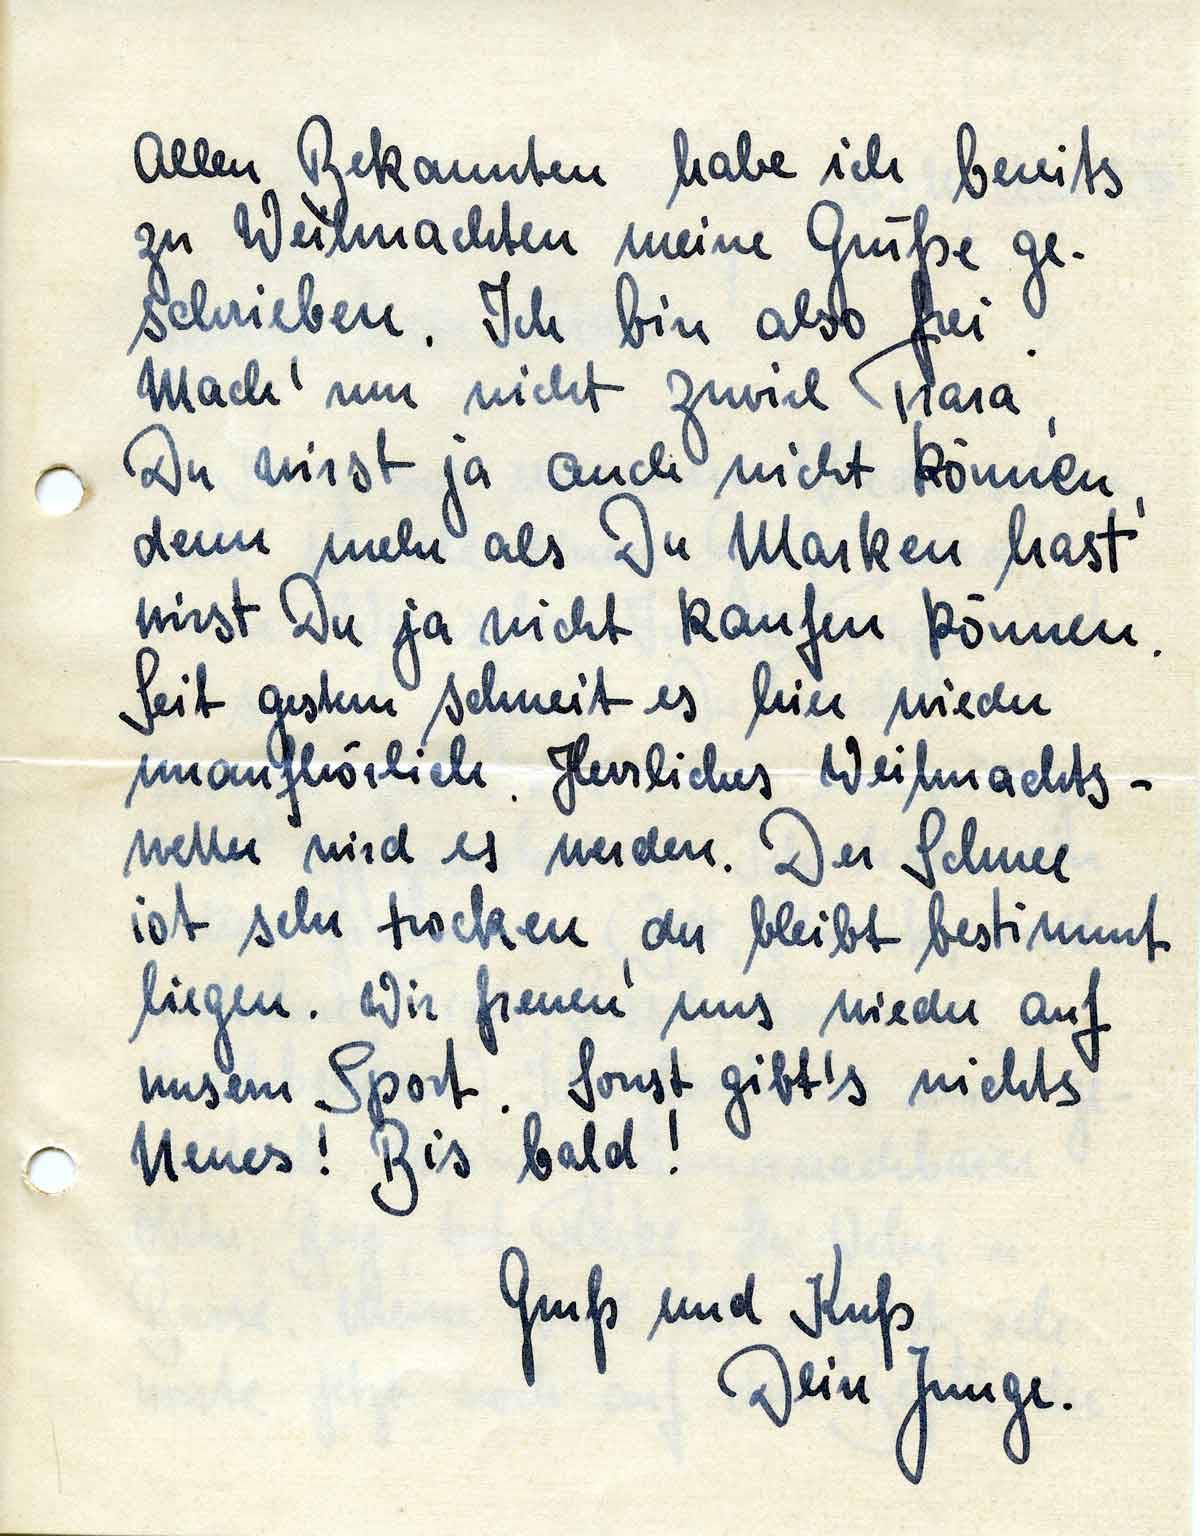 Allen Bekannten habe ich bereits
zu Weihnachten meine Grüße ge-
schrieben. Ich bin also frei.
Mach' nur nicht zuviel Trara,
Du wirst ja auch nicht können,
denn mehr als Du Marken hast,
wirst Du ja nicht kaufen können.
Seit gestern schneit es hier wieder
unaufhörlich. Herrliches Weihnachts-
wetter wird es werden. Der Schnee
ist sehr trocken, der bleibt bestimmt
liegen. Wir freuen uns wieder auf
unsern Sport. Sonst gibt's nichts
Neues! Bis bald!
Gruß und Kuß
Dein Junge.